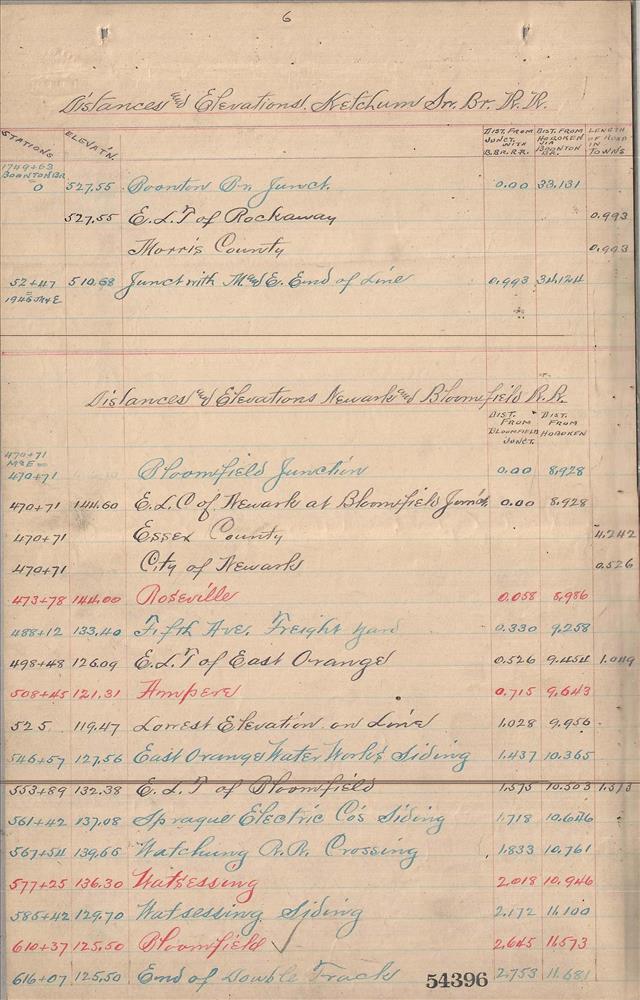 6
Distances and Elevations. Ketchum Sn. Br. R.R.
STATIONS ELEVAT'N. DIST. FROM JUNCT. WITH B.BR.R.R. DIST. FROM HOBOKEN VIA BOONTON BR. LENGTH OF ROAD IN TOWNS
1749+63
BOONTON BR
0 527.55 Boonton Br. Junct. 0.00 33.131
527.55 E.L.T of Rockaway 0.993
Morris County 0.993
52+47 510.68 Junct with M and E. End of Line 0.993 34.124
=
1946 M&E
Distances and Elevations Newark and Bloomfield R.R.
DIST. FROM BLOOMFIELD JUNCT. DIST. FROM HOBOKEN
470+71
M&E =
470+71 Bloomfield Junction 0.00 8.928
470+71 144.60 E.L.C of Newark at Bloomfield Junct. 0.00 8.928
470+71 Essex County 4.242
470+71 City of Newark 0.526
473+78 144.00 Roseville 0.058 8.986
488+12 133.40 Fifth Ave. Freight Yard 0.330 9.258
498+48 126.09 E.L.T of East Orange 0.526 9.454 1.049
508+45 121.31 Ampere 0.715 9.643
525 119.47 Lowest Elevation on Line 1.028 9.956
546+57 127.56 East Orange Water Works Siding 1.437 10.365
553+89 132.38 E.L.T of Bloomfield 1.575 10.503
561+42 137.08 Sprague Electric Co's Siding 1.718 10.646
567+54 139.66 Watchung R.R. Crossing 1.833 10.761
577+25 136.30 Watsessing 2.018 10.946
585+42 129.70 Watsessing Siding 2.172 11.100
610+37 125.50 Bloomfield ✓ 2.645 11.573
616+07 125.50 End of Double Track 2.753 11.681
54396